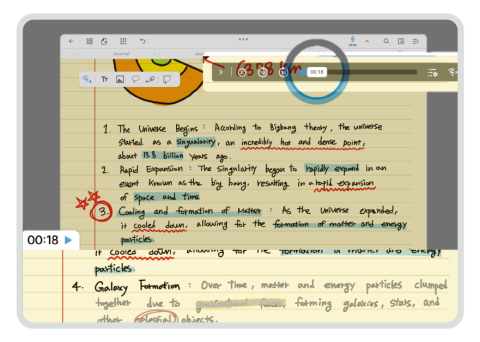 Journal
6378 km
00:18
Tr
1. The Universe Begins : According to Bigbang theory, the universe
started as a singularity, an incredibly hot and dense point,
about 13.8 billion years ago.
2. Rapid Expansion : The Singularity began to rapidly expand in an
event known as the big bang, resulting in a rapid expansion
of space and time
3. Cooling and formation of Matter : As the Universe expanded,
it cooled down, allowing for the formation of matter and energy
particles.
00:18
it cooled down, allowing for the formation of matter and energy
particles.
4. Galaxy Formation : Over time, matter and energy particles clumped
together due to gravitational forces, forming galaxies, stars, and
other celestial objects.